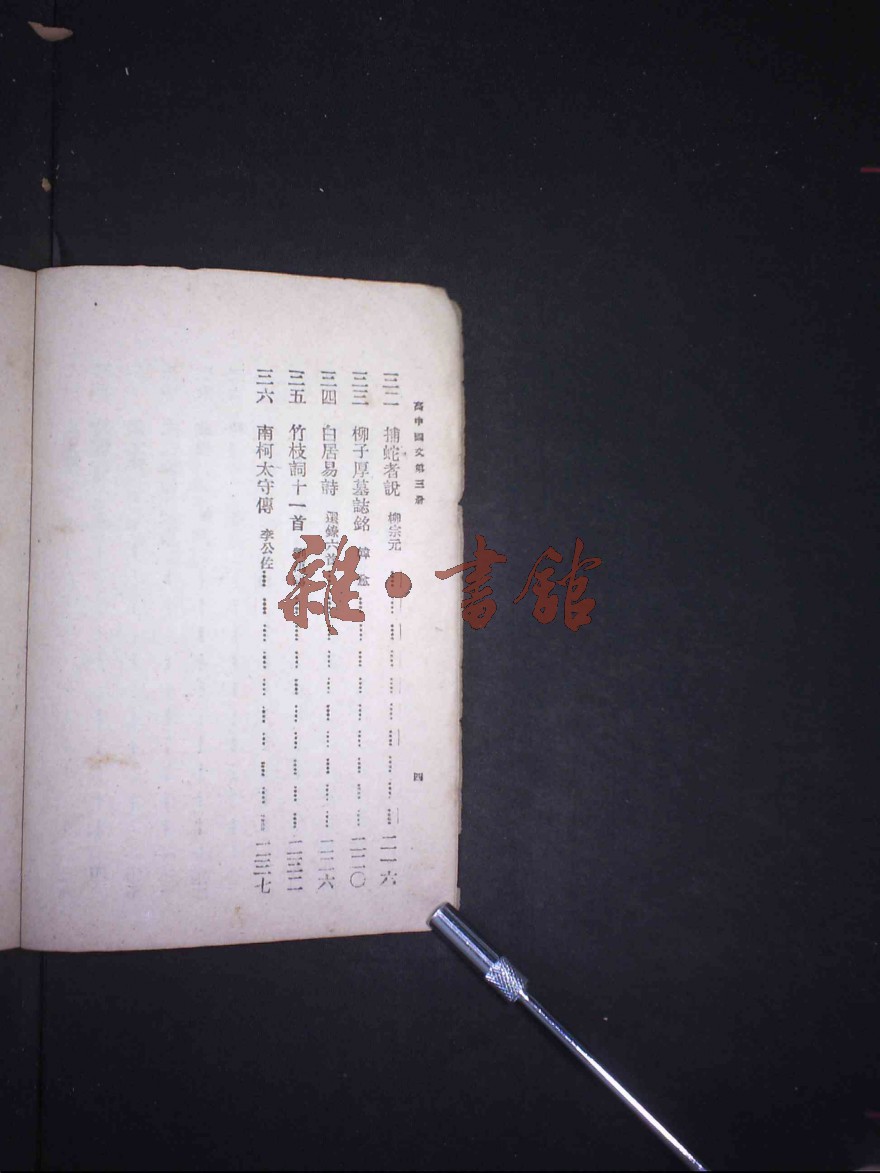 高中國文第三册
四
三二 捕蛇者說 柳宗元………二一六
三三 柳子厚墓誌銘 韓愈………二二〇
三四 白居易詩 選錄六首………二二六
三五 竹枝詞十一首………二三二
三六 南柯太守傳 李公佐………二三七
雜·書館